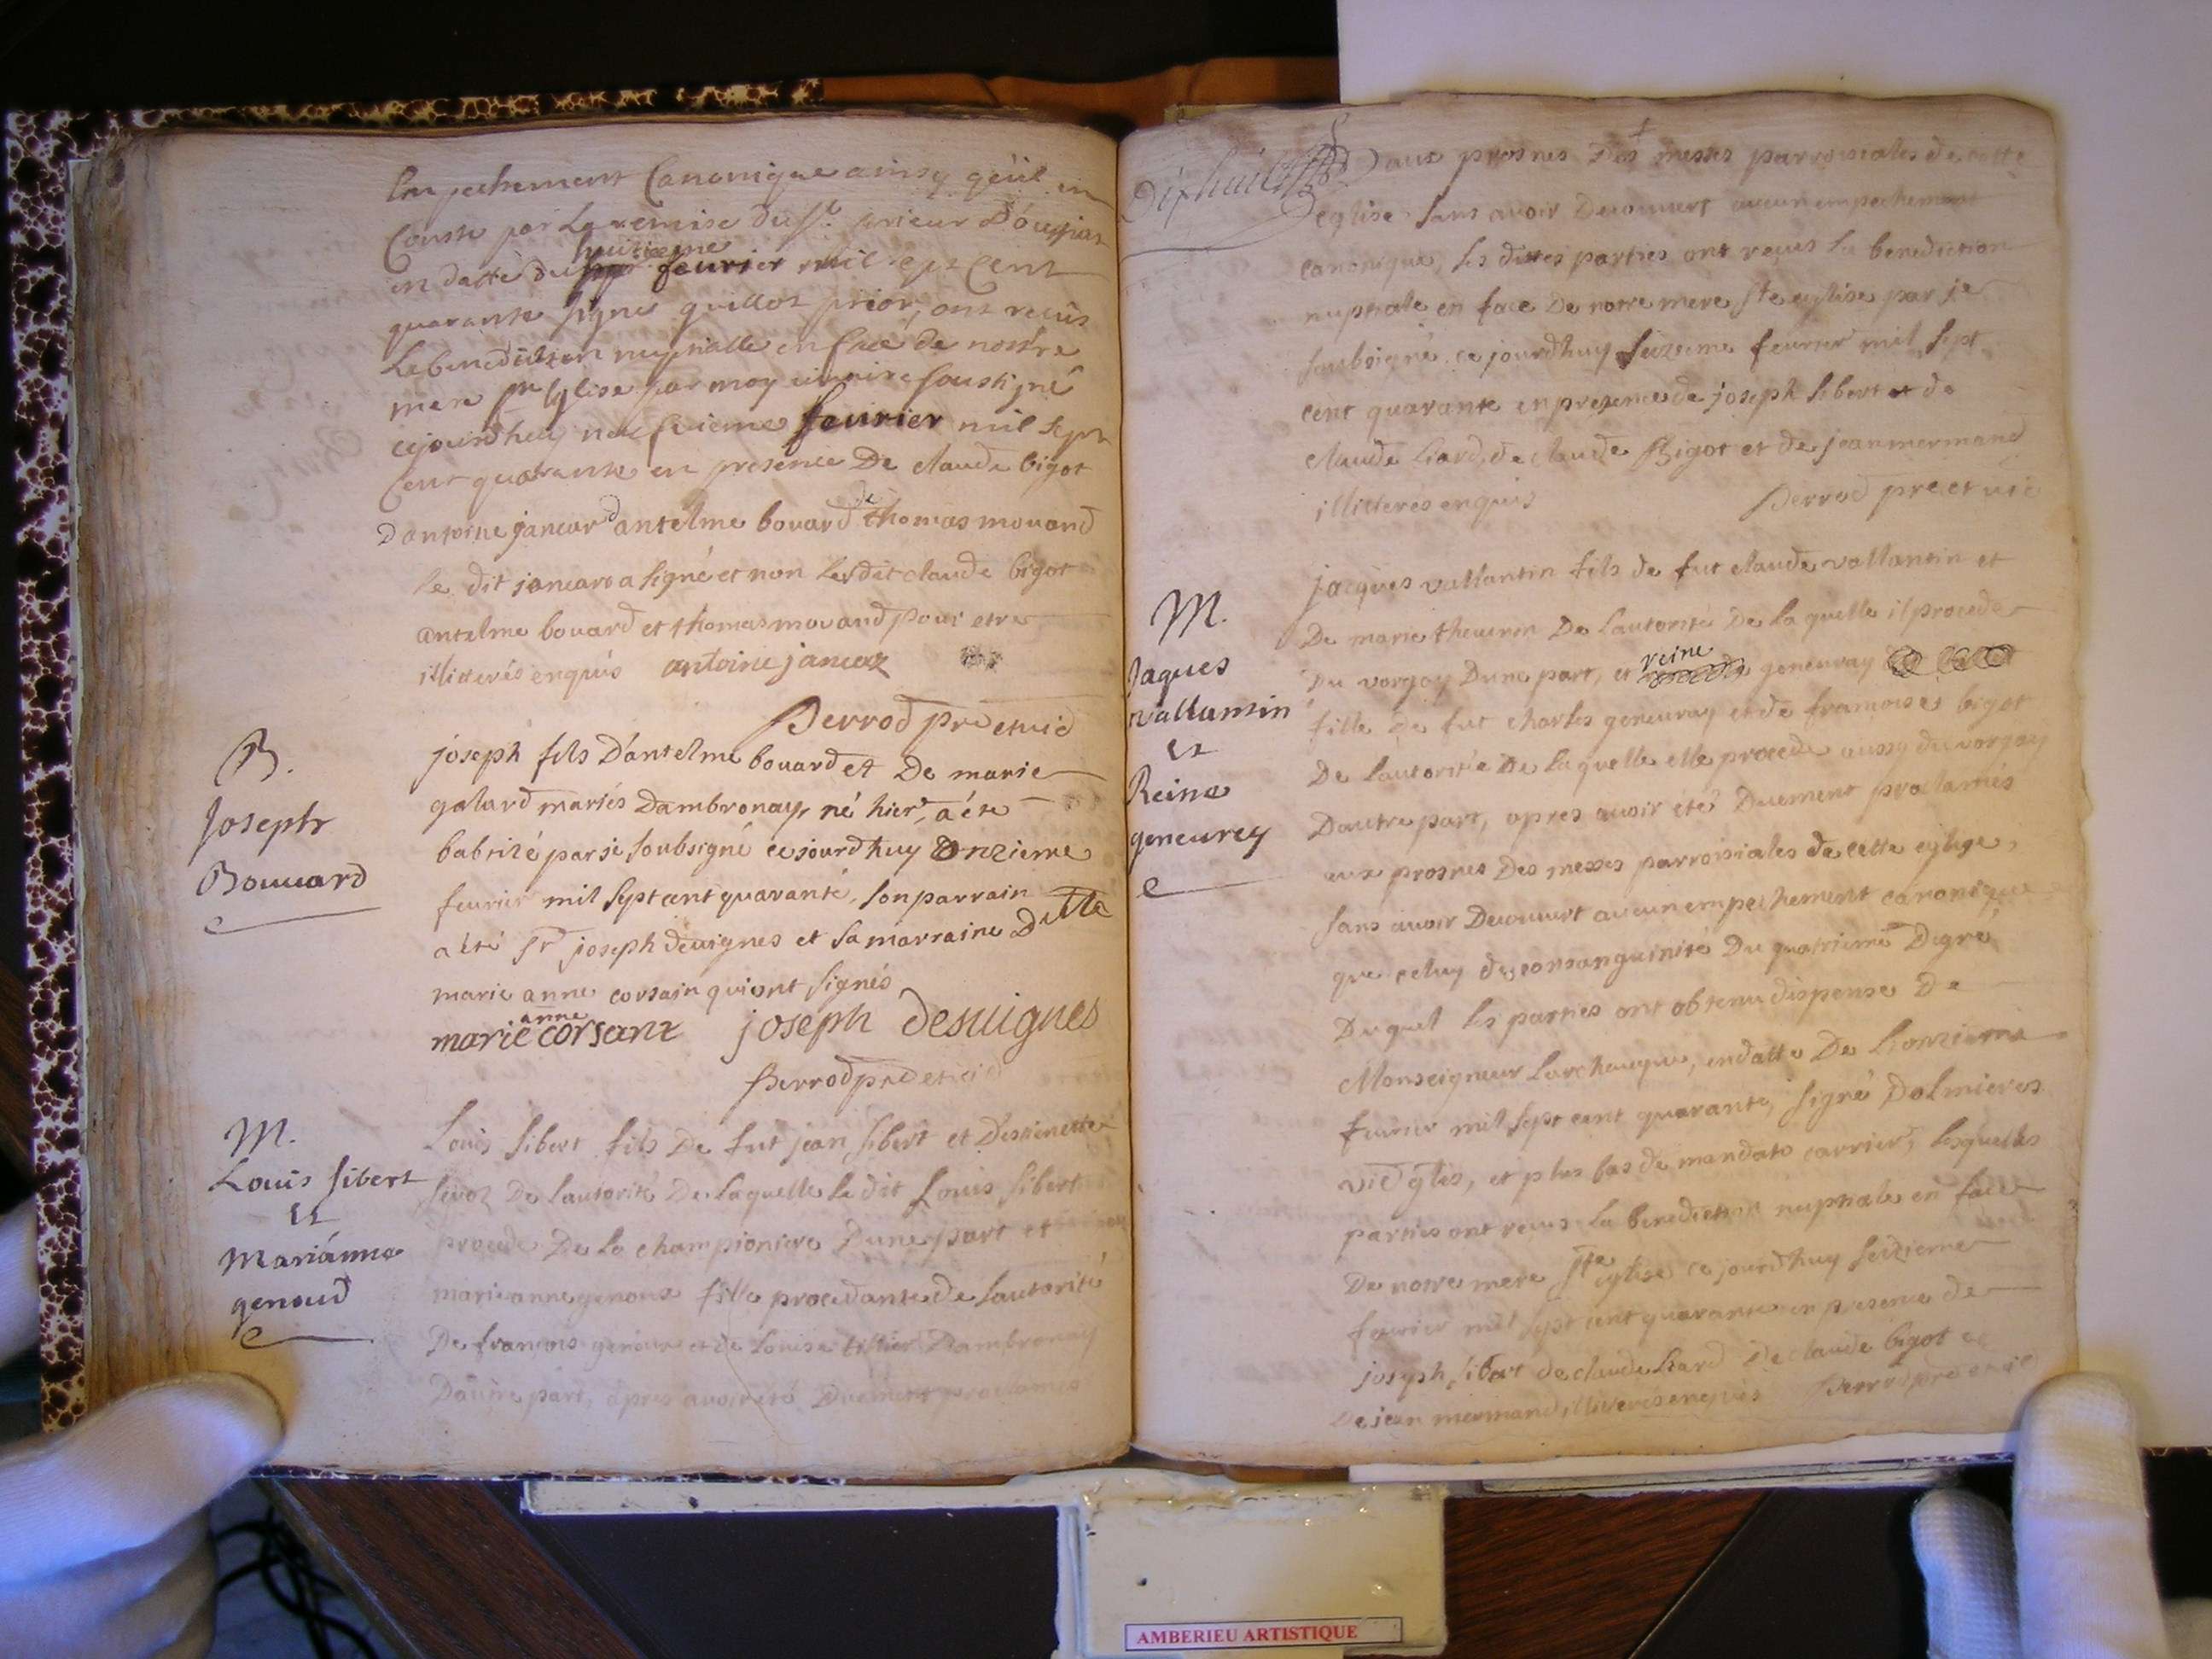 Empechement Canonique ainsy qéüil en
Conste par La remise du Sr. prieur D'oussiat
in datte du huitieme feurier mil sept Cent
quarante signé guillot prior, ont recüs
La benediction nuptialle en face de nostre
mere Ste Eglise par moy vicaire soussigné
cejourdhuy neufuieme feurier mil sept
Cent quarante en presence De claude bigot
D'antoine jancard antelme bouard de thomas mouand
le dit jancard a signé et non lesdit claude bigot
antelme bouard et thomas mouand pour etre
illiterés enquis antoine jancaz
Perrod pre et vic
B.
Joseph
Bouuard
joseph fils D'antelme bouard et De marie
galard mariés Dambronay né hier, a été
babtizé par je soubsigné cejourdhuy Onzieme
feurier mil sept cent quarante, son parrain
a été Sr joseph deuignes et sa marraine Dlle
marie anne corsain qui ont signés
marie anne corsant joseph desuignes
Perrod pre et vic
M.
Louis sibert
et
Mariánne
genoud
Louis sibert fils De fut jean sibert et D'estienette
De lautorité De laquelle le dit Louis sibert
procede De la championiere Dune part et
marie anne genoux fille procedante de lautorité
De francois genoux et de Louise tillier Dambronay
Dautre part, apres avoir eté Duement proclamés
Dixhuit
aux prosnes Des messes parroissiales de cette
eglise sans avoir Decouuert aucun empechement
canonique, les dittes parties ont reçus la benediction
nuptiale en face De notre mere Ste eglise par je
soubsigné cejourdhuy seizieme feurier mil sept
cent quarante en presence de joseph sibert et de
claude Liard, de claude Bigot et de jean mermand
illiterés enquis Perrod pre et vic
M.
Jaques
vallantin
et
Reine
geneurey
jacques vallantin fils de fut claude vallantin et
De marie theuenin De lautorité De laquelle il procede
Du vorgey Dune part, et reine geneuray
fille De fut charles geneuray et de francoises bigot
De lautorité De laquelle elle procede aussy du vorgey
Dautre part, apres avoir étés Duement proclamés
aux prosnes Des messes parroissiales de cette eglise,
sans avoir Decouuert aucun empechement canonique
que celuy de consanguinité Du quatrieme Degré
Duquel les parties ont obtenu dispense De
Monseigneur Larcheueque, en datte De Lonzieme
feurier mil sept cent quarante, signé Dolmieres
vic gles, et plus bas de mandato carrier, lesquelles
parties ont reçus la benediction nuptiale en face
De notre mere Ste eglise cejourdhuy seizieme
feurier mil sept cent quarante en presence de
joseph sibert de claude Liard De claude bigot et
De jean mermand, illiterés enquis Perrod pre et vic
AMBERIEU ARTISTIQUE